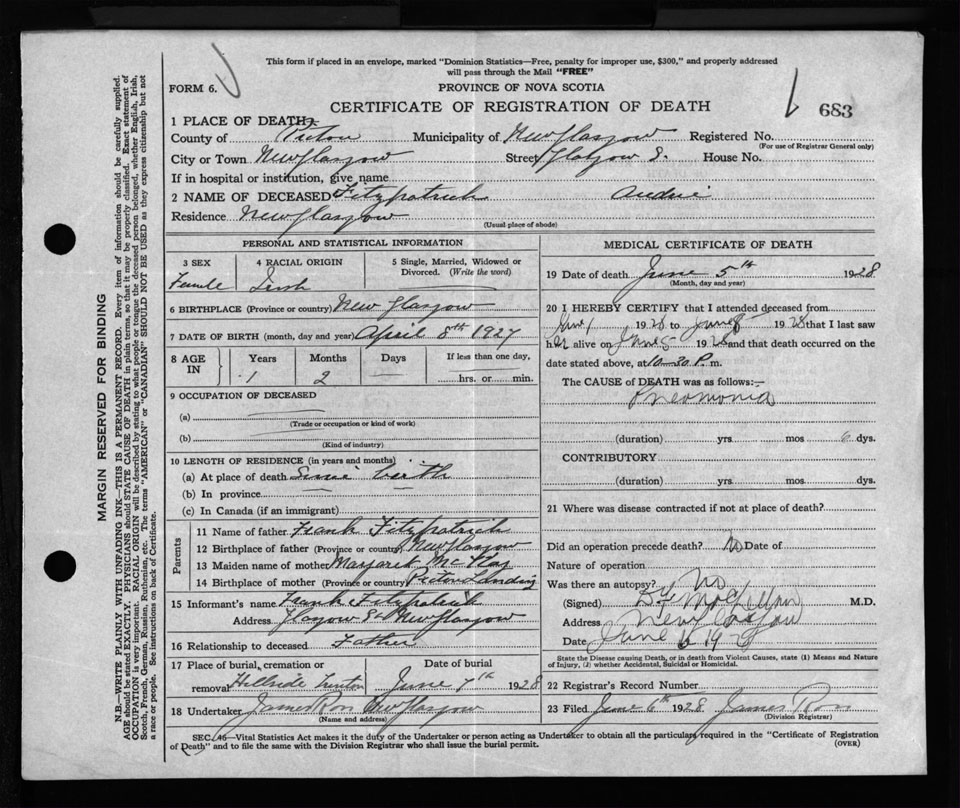 This form if placed in an envelope, marked "Dominion Statistics—Free, penalty for improper use, $300," and properly addressed
will pass through the Mail "FREE"
FORM 6.
PROVINCE OF NOVA SCOTIA
CERTIFICATE OF REGISTRATION OF DEATH
683
1 PLACE OF DEATH
County of Pictou Municipality of New Glasgow Registered No.
(For use of Registrar General only)
City or Town New Glasgow Street Glasgow S. House No.
If in hospital or institution, give name
2 NAME OF DECEASED Fitzpatrick Audrie
Residence New Glasgow
(Usual place of abode)
PERSONAL AND STATISTICAL INFORMATION
3 SEX 4 RACIAL ORIGIN 5 Single, Married, Widowed or
Divorced. (Write the word)
Female Irish
6 BIRTHPLACE (Province or country) New Glasgow
7 DATE OF BIRTH (month, day and year) April 8th 1927
8 AGE IN Years Months Days If less than one day,
1 2 — hrs. or min.
9 OCCUPATION OF DECEASED
(a)
(Trade or occupation or kind of work)
(b)
(Kind of industry)
10 LENGTH OF RESIDENCE (in years and months)
(a) At place of death Since birth
(b) In province
(c) In Canada (if an immigrant)
Parents
11 Name of father Frank Fitzpatrick
12 Birthplace of father (Province or country) New Glasgow
13 Maiden name of mother Margaret
14 Birthplace of mother (Province or country) Pictou Landing
15 Informant's name Frank Fitzpatrick
Address Glasgow St New Glasgow
16 Relationship to deceased Father
17 Place of burial, cremation or Date of burial
removal Hillside Trenton June 7th 1928
18 Undertaker James Ross New Glasgow
(Name and address)
MEDICAL CERTIFICATE OF DEATH
19 Date of death June 5th 1928
(Month, day and year)
20 I HEREBY CERTIFY that I attended deceased from
June 1 1928 to June 5 1928 that I last saw
her alive on June 5 1928 and that death occurred on the
date stated above, at 10-30 P. m.
The CAUSE of DEATH was as follows:—
Pneomonia
(duration) yrs. mos 6 dys.
CONTRIBUTORY
(duration) yrs. mos. dys.
21 Where was disease contracted if not at place of death?
Did an operation precede death? No Date of
Nature of operation
Was there an autopsy? No
(Signed) McLellan M.D.
Address New Glasgow
Date June 6 1928
State the Disease causing Death, or in death from Violent Causes, state (1) Means and Nature
of Injury, (2) whether Accidental, Suicidal or Homicidal.
22 Registrar's Record Number
23 Filed June 6th 1928 James Ross
(Division Registrar)
SEC. 46—Vital Statistics Act makes it the duty of the Undertaker or person acting as Undertaker to obtain all the particulars required in the "Certificate of Registration
of Death" and to file the same with the Division Registrar who shall issue the burial permit.
(OVER)
MARGIN RESERVED FOR BINDING
N.B.—WRITE PLAINLY WITH UNFADING INK—THIS IS A PERMANENT RECORD. Every item of information should be carefully supplied.
AGE should be stated EXACTLY. PHYSICIANS should STATE CAUSE OF DEATH in plain terms, so that it may be properly classified. Exact statement of
OCCUPATION is very important. RACIAL ORIGIN will be described by stating to what people or tongue the deceased person belonged, whether English, Irish,
Scotch, French, German, Russian, Ruthenian, etc. The terms "AMERICAN" or "CANADIAN" SHOULD NOT BE USED as they express citizenship but not
a race or people. See instructions on back of Certificate.